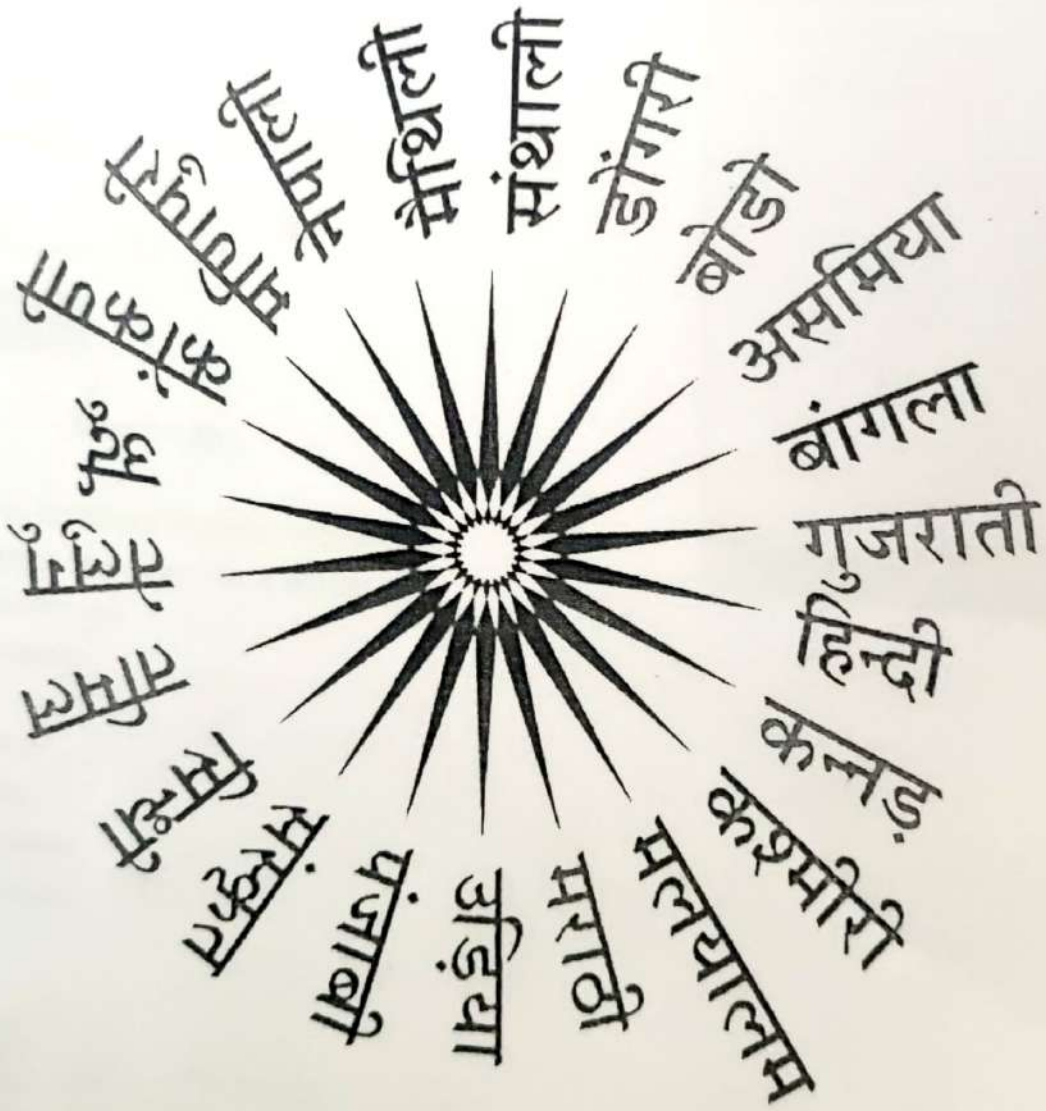 संथाली
डोंगरी
बोडो
असमिया
बांगला
गुजराती
हिन्दी
कन्नड़
कश्मीरी
मलयालम
मराठी
उड़िया
पंजाबी
संस्कृत
सिन्धी
तमिल
तेलुगु
उर्दू
कोंकणी
मणिपुरी
नेपाली
मैथिली